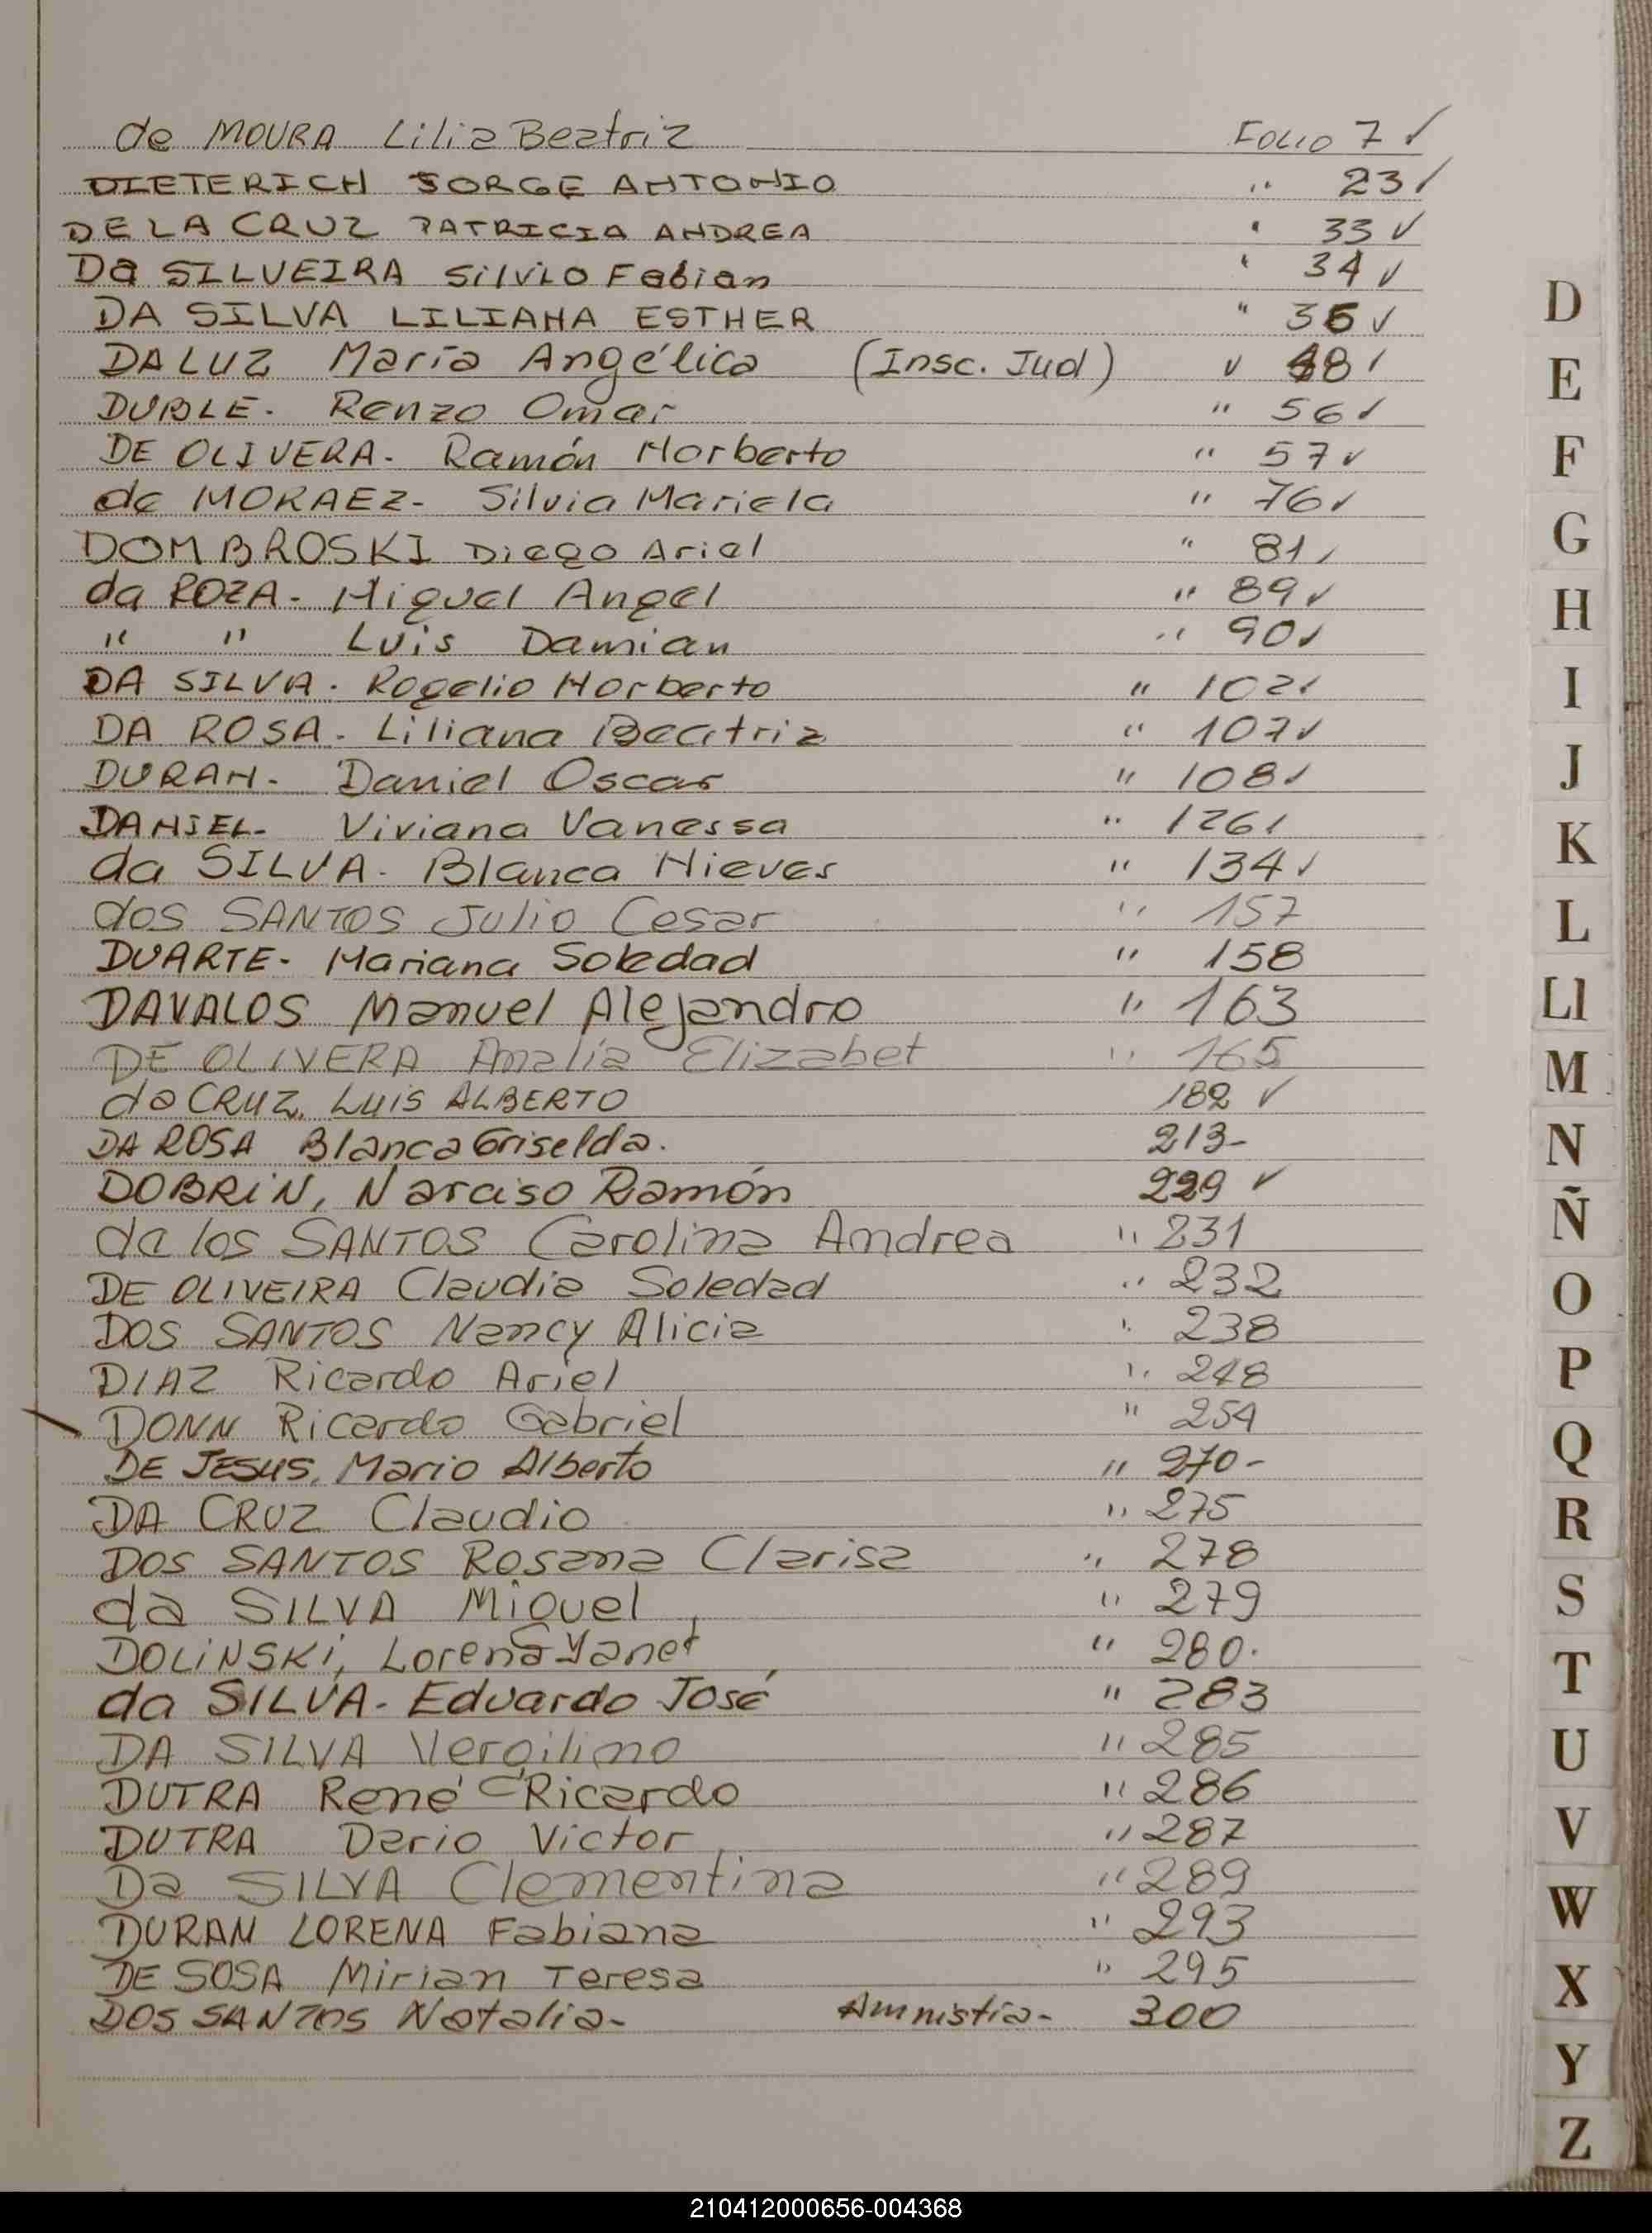 de MOURA Lilia Beatriz FOLIO 7 ✓
DIETERICH JORGE ANTONIO " 23 ✓
DE LA CRUZ PATRICIA ANDREA " 33 ✓
Da SILUEIRA Silvio Fabian " 34 ✓
DA SILVA LILIANA ESTHER " 36 ✓
DA LUZ María Angélica (Insc. Jud) " 48 ✓
DUBLE- Renzo Omar " 56 ✓
DE OLIVERA- Ramón Norberto " 57 ✓
de MORAEZ- Silvia Mariela " 76 ✓
DOMBROSKI Diego Ariel " 81 ✓
da ROZA- Miguel Angel " 89 ✓
" " Luis Damian " 90 ✓
DA SILVA- Rogelio Norberto " 102 ✓
DA ROSA- Liliana Beatriz " 107 ✓
DURAN- Daniel Oscar " 108 ✓
DANIEL- Viviana Vanessa " 126 ✓
da SILVA- Blanca Nieves " 134 ✓
dos SANTOS Julio Cesar " 157
DUARTE- Mariana Soledad " 158
DAVALOS Manuel Alejandro " 163
DE OLIVERA Amalia Elizabet " 165
da CRUZ, LUIS ALBERTO 182 ✓
DA ROSA Blanca Griselda. 213-
DOBRIN, Narciso Ramón 229 ✓
de los SANTOS Carolina Andrea " 231
DE OLIVEIRA Claudia Soledad " 232
DOS SANTOS Nancy Alicia " 238
DIAZ Ricardo Ariel " 248
DONN Ricardo Gabriel " 254
DE JESUS, Mario Alberto " 270-
DA CRUZ Claudio " 275
DOS SANTOS Rosana Clarisa " 278
da SILVA Miguel " 279
DOLINSKI, Lorena Yanet " 280.
da SILVA- Eduardo José " 283
DA SILVA Vergilino " 285
DUTRA René Ricardo " 286
DUTRA Dario Victor " 287
Da SILVA Clementina " 289
DURAN LORENA Fabiana " 293
DE SOSA Mirian Teresa " 295
DOS SANTOS Natalia- Amnistia- 300
D
E
F
G
H
I
J
K
L
Ll
M
N
Ñ
O
P
Q
R
S
T
U
V
W
X
Y
Z
210412000656-004368